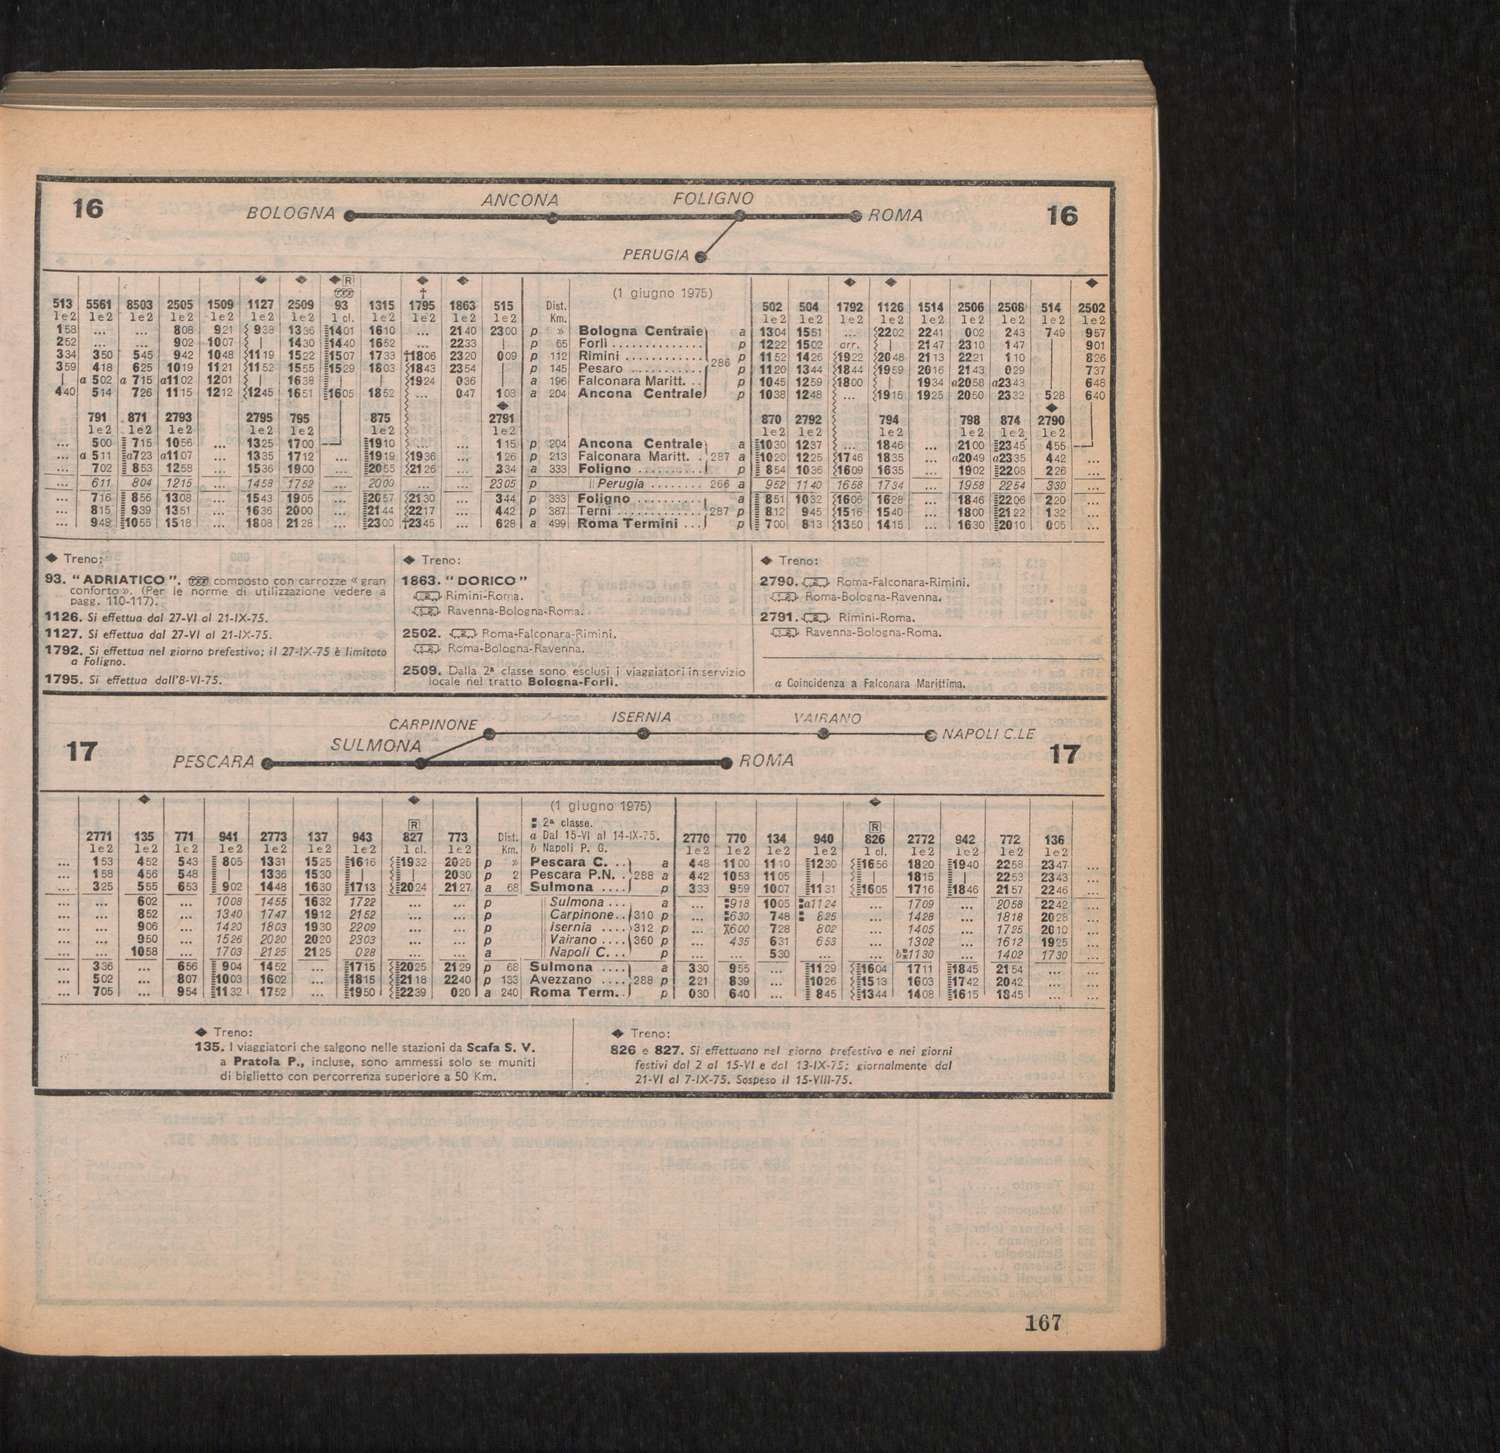 16 BOLOGNA ANCONA FOLIGNO ROMA 16
PERUGIA
(1 giugno 1975)
513 5561 8503 2505 1509 1127 2509 93 1315 1795 1863 515 Dist. 502 504 1792 1126 1514 2506 2508 514 2502
1e2 1e2 1e2 1e2 1e2 1e2 1e2 1 cl. 1e2 1e2 1e2 1e2 Km. 1e2 1e2 1e2 1e2 1e2 1e2 1e2 1e2 1e2
158 ... ... 808 921 938 1336 1401 1610 ... 2140 2300 p » Bologna Centrale a 1304 1551 ... 2202 2241 002 243 749 957
252 ... ... 902 1007 | 1430 1440 1652 ... 2233 | p 65 Forlì p 1222 1502 arr. | 2147 2310 147 | 901
334 350 545 942 1048 1119 1522 1507 1733 †1806 2320 009 p 112 Rimini 286 p 1152 1426 1922 2048 2113 2221 110 | 826
359 418 625 1019 1121 1152 1555 1529 1803 1843 2354 | p 145 Pesaro p 1120 1344 1844 1959 2016 2143 029 | 737
| a 502 a 715 a1102 1201 | 1638 | | 1924 036 | a 196 Falconara Maritt. p 1045 1259 1800 | 1934 a2058 a2343 | 648
440 514 726 1115 1212 1245 1651 1605 1852 ... 047 103 a 204 Ancona Centrale p 1038 1248 ... 1915 1925 2050 2332 528 640
791 871 2793 2795 795 875 2791 870 2792 794 798 874 2790
1e2 1e2 1e2 1e2 1e2 1e2 1e2 1e2 1e2 1e2 1e2 1e2 1e2
... 500 715 1056 ... 1325 1700 1910 ... ... 115 p 204 Ancona Centrale a 1030 1237 ... 1846 ... 2100 2345 455
... a 511 a723 a1107 ... 1335 1712 ... 1919 1936 ... 126 p 213 Falconara Maritt. 287 a 1020 1225 1746 1835 ... a2049 a2335 442 ...
... 702 853 1258 ... 1536 1900 ... 2055 2126 ... 334 a 333 Foligno p 854 1036 1609 1635 ... 1902 2208 226 ...
... 611 804 1215 ... 1458 1752 ... 2000 ... ... 2305 p Perugia 266 a 952 1140 1658 1734 ... 1958 2254 330 ...
... 716 856 1308 ... 1543 1905 ... 2057 2130 ... 344 p 333 Foligno a 851 1032 1606 1628 ... 1846 2206 220 ...
... 815 939 1351 ... 1636 2000 ... 2144 2217 ... 442 p 387 Terni 287 p 812 945 1516 1540 ... 1800 2122 132 ...
... 948 1055 1518 ... 1808 2128 ... 2300 †2345 ... 628 a 499 Roma Termini p 700 813 1350 1415 ... 1630 2010 005 ...
◆ Treno:
93. “ ADRIATICO ”. composto con carrozze « gran
conforto ». (Per le norme di utilizzazione vedere a
pagg. 110-117).
1126. Si effettua dal 27-VI al 21-IX-75.
1127. Si effettua dal 27-VI al 21-IX-75.
1792. Si effettua nel giorno prefestivo; il 27-IX-75 è limitato
a Foligno.
1795. Si effettua dall'8-VI-75.
◆ Treno:
1863. “ DORICO ”
Rimini-Roma.
Ravenna-Bologna-Roma.
2502. Roma-Falconara-Rimini.
Roma-Bologna-Ravenna.
2509. Dalla 2ª classe sono esclusi i viaggiatori in servizio
locale nel tratto Bologna-Forlì.
◆ Treno:
2790. Roma-Falconara-Rimini.
Roma-Bologna-Ravenna.
2791. Rimini-Roma.
Ravenna-Bologna-Roma.
a Coincidenza a Falconara Marittima.
17 PESCARA SULMONA CARPINONE ISERNIA VAIRANO NAPOLI C.LE ROMA 17
(1 giugno 1975)
2ª classe.
a Dal 15-VI al 14-IX-75.
b Napoli P. G.
2771 135 771 941 2773 137 943 827 773 Dist. 2770 770 134 940 826 2772 942 772 136
1e2 1e2 1e2 1e2 1e2 1e2 1e2 1 cl. 1e2 Km. 1e2 1e2 1e2 1e2 1 cl. 1e2 1e2 1e2 1e2
... 153 452 543 805 1331 1525 1616 1932 2025 p » Pescara C. a 448 1100 1110 1230 1656 1820 1940 2258 2347 ...
... 158 456 548 | 1336 1530 | | 2030 p 2 Pescara P.N. 288 a 442 1053 1105 | | 1815 | 2253 2343 ...
... 325 555 653 902 1448 1630 1713 2024 2127 a 68 Sulmona p 333 959 1007 1131 1605 1716 1846 2157 2246 ...
... ... 602 ... 1008 1455 1632 1722 ... ... p Sulmona a ... 918 1005 a1124 ... 1709 ... 2058 2242 ...
... ... 852 ... 1340 1747 1912 2152 ... ... p Carpinone 310 p ... 630 748 825 ... 1428 ... 1818 2028 ...
... ... 906 ... 1420 1803 1930 2209 ... ... p Isernia 312 p ... 600 728 802 ... 1405 ... 1725 2010 ...
... ... 950 ... 1526 2020 2020 2303 ... ... p Vairano 360 p ... 435 631 653 ... 1302 ... 1612 1925 ...
... ... 1058 ... 1703 2125 2125 028 ... ... a Napoli C. p ... ... 530 ... ... b1130 ... 1402 1730 ...
... 336 ... 656 904 1452 ... 1715 2025 2129 p 68 Sulmona a 330 955 ... 1129 1604 1711 1845 2154 ... ...
... 502 ... 807 1003 1602 ... 1815 2118 2240 p 133 Avezzano 288 p 221 839 ... 1026 1513 1603 1742 2042 ... ...
... 705 ... 954 1132 1752 ... 1950 2239 020 a 240 Roma Term. p 030 640 ... 845 1344 1408 1615 1845 ... ...
◆ Treno:
135. I viaggiatori che salgono nelle stazioni da Scafa S. V.
a Pratola P., incluse, sono ammessi solo se muniti
di biglietto con percorrenza superiore a 50 Km.
◆ Treno:
826 e 827. Si effettuano nel giorno prefestivo e nei giorni
festivi dal 2 al 15-VI e dal 13-IX-75; giornalmente dal
21-VI al 7-IX-75. Sospeso il 15-VIII-75.
167